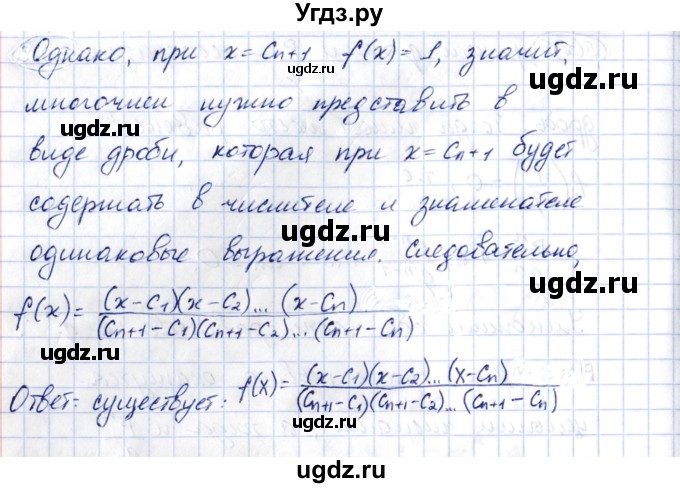 Угдз.ру
Однако, при x = Cn+1 f(x) = 1, значит,
ugdz.ru
многочлен нужно представить в
ugdz.ru ugdz.ru
виде дроби, которая при x = Cn+1 будет
ugdz.ru
содержать в числителе и знаменателе
ugdz.ru
одинаковые выражения. Следовательно,
ugdz.ru
f(x) = (x-C1)(x-C2)...(x-Cn) / (Cn+1-C1)(Cn+1-C2)...(Cn+1-Cn)
ugdz.ru ugdz.ru
Ответ: существует: f(x) = (x-C1)(x-C2)...(x-Cn) / (Cn+1-C1)(Cn+1-C2)...(Cn+1-Cn)
ugdz.ru ugdz.ru
ugdz.ru